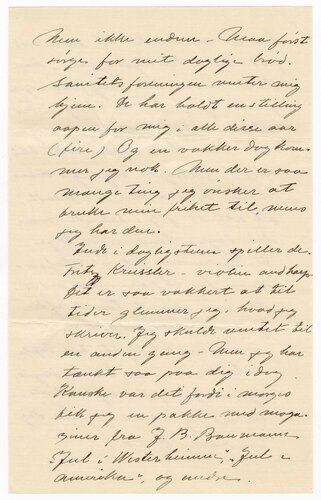 Men ikke endnu - Maa först
sörge for mit daglige bröd.
Sanitetsforeningen venter mig
hjem. De har holdt en stilling
aapen for mig i alle disse aar
(fire) Og en vakker dag kom-
mer jeg nok. Men der er saa
mange ting jeg önsker at
bruke min frihet til, mens
jeg har den.
Inde i dagligstuen spiller de
Fritz Kreissler - violin and harp
Det er saa vakkert at til
tider glemmer jeg, hvad jeg
skriver. Jeg skulde ventet til
en anden gang - Men jeg har
tænkt saa paa dig i dag.
Kanske var det fordi i morges
fik jeg en pakke med maga-
ziner fra J. B. Baumann
Jul i Westerheimen", "Jul i
Amerika", og andre.